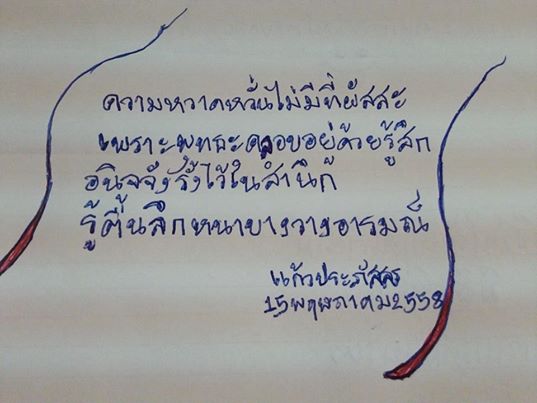 ความหวาดหวั่นไม่มีที่ผัสสะ
เพราะพุทธะครอบอยู่ด้วยรู้สึก
อนิจจังรั้งไว้ในสำนึก
รู้ตื้นลึกหนาบางวางอารมณ์
แก้วประภัสสร
15พฤษภาคม2558